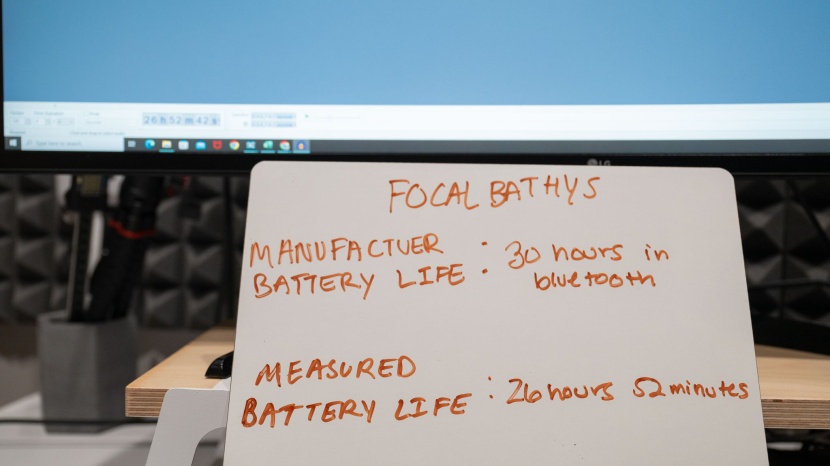 26 h 52 m 42 s
Type here to search
LG
FOCAL BATHYS
MANUFACTUER
BATTERY LIFE : 30 hours in
bluetooth
MEASURED
BATTERY LIFE : 26 hours 52 minutes